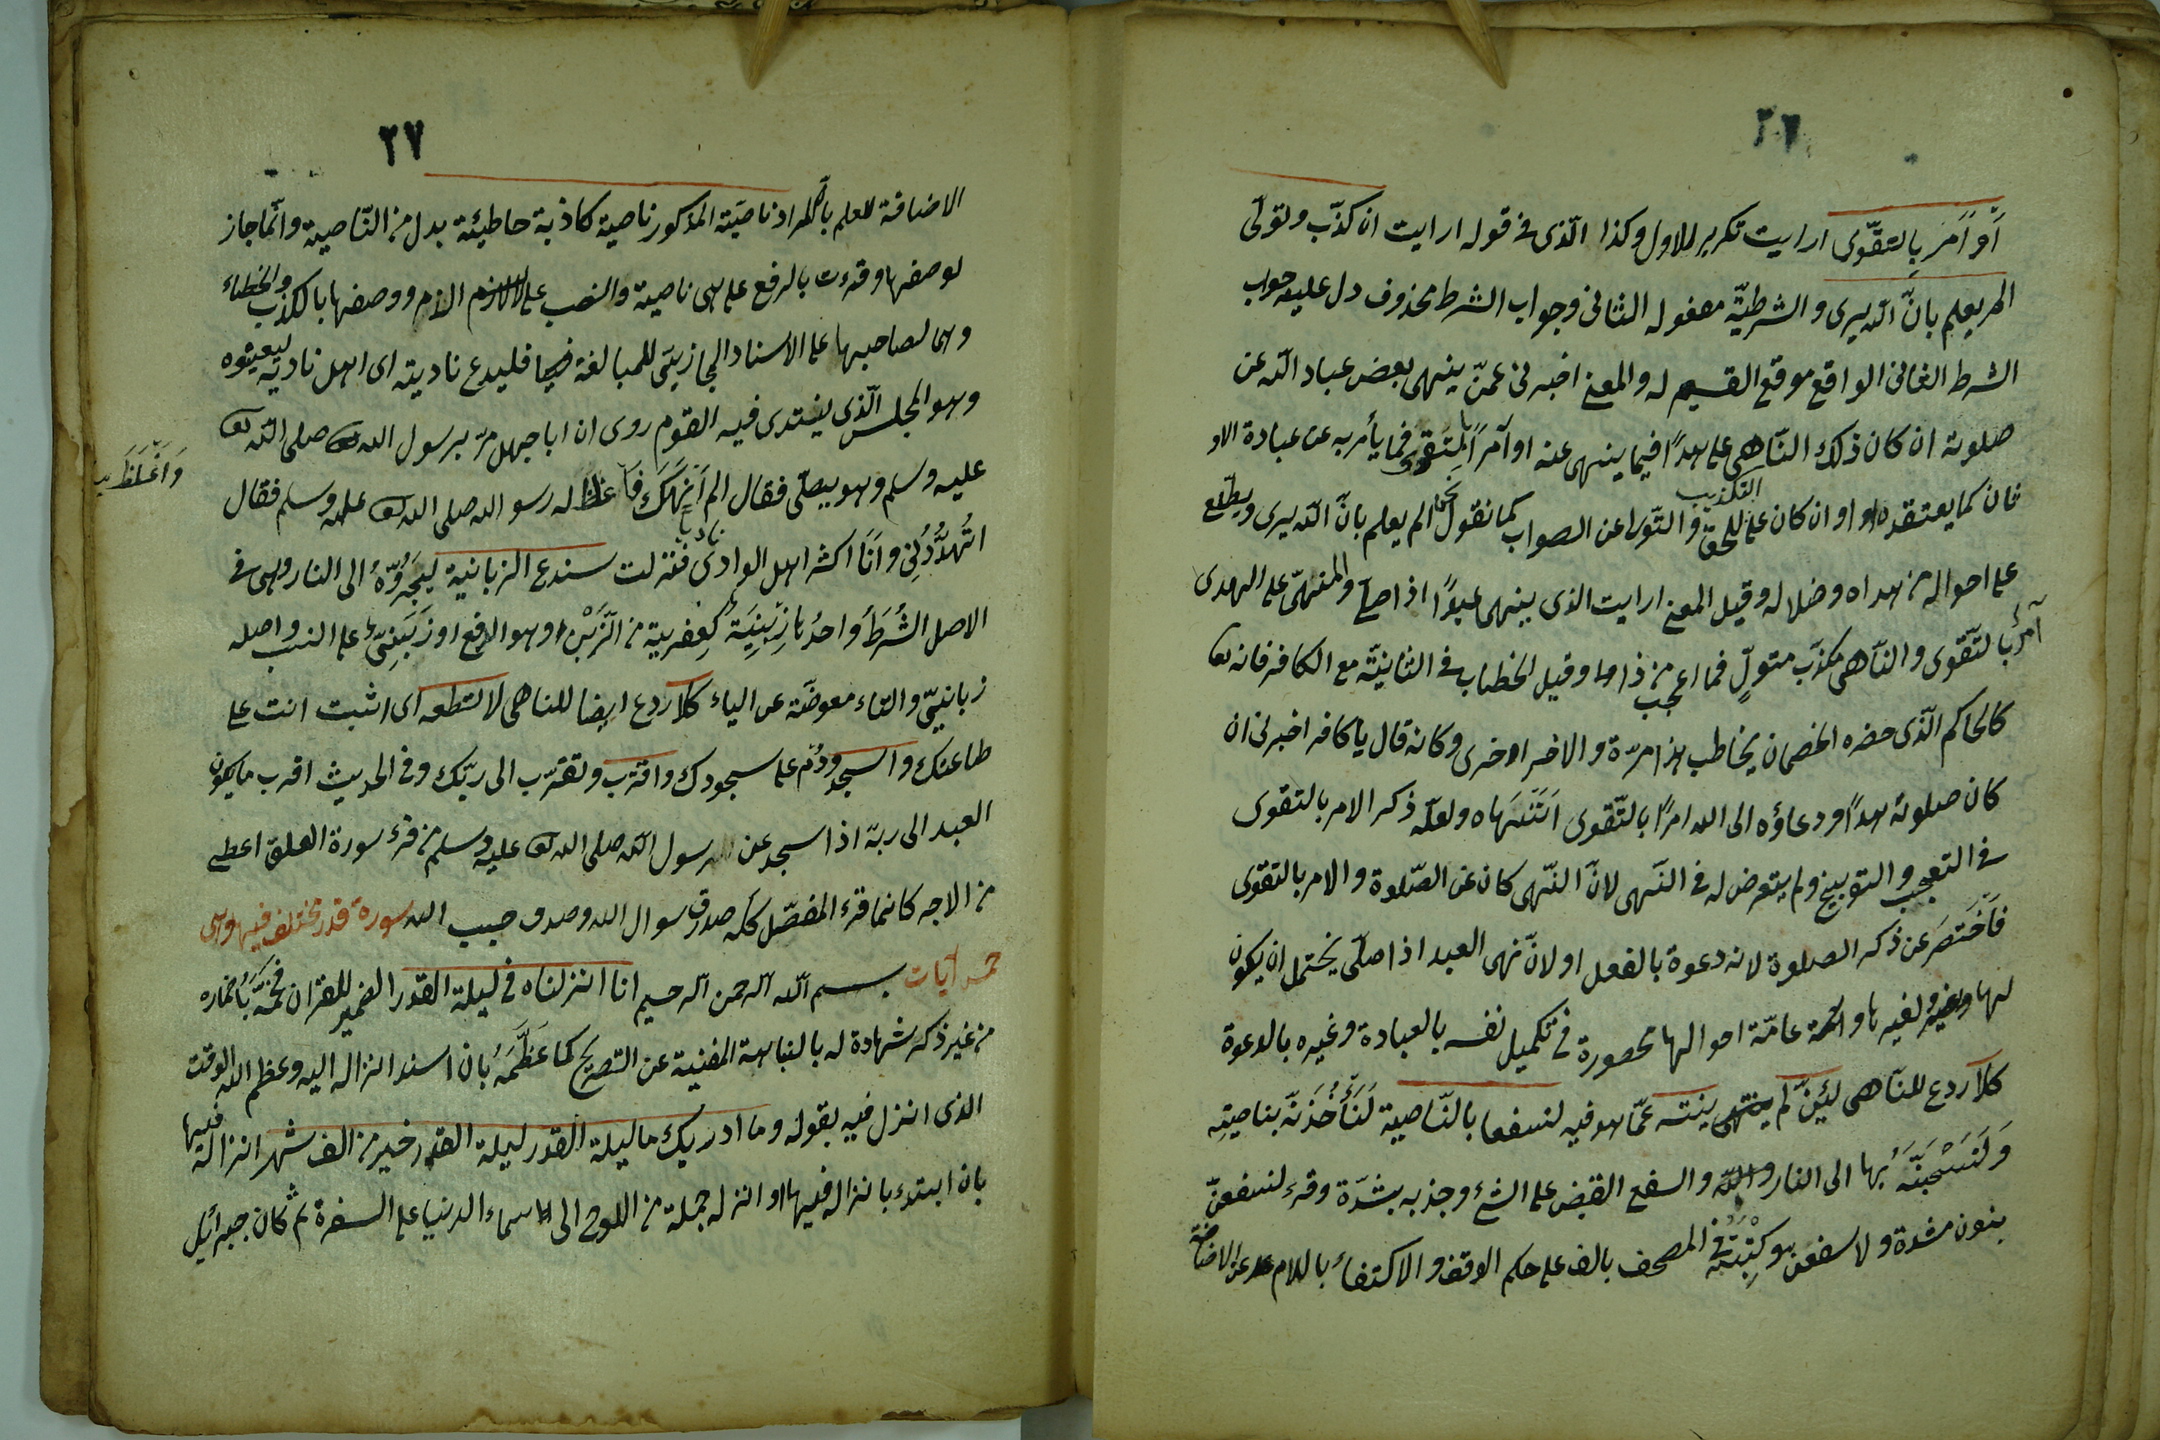 ٢٦
أَوْ أَمَرَ بالتَّقْوى ارايت تكرير للاول وكذا الّذى فى قوله ارايت ان كذّب وتولّى
الم يعلم بانّ اللّه يرى والشرطيّة مفعوله الثانى وجواب الشرط محذوف دل عليه جواب
الشرط الثانى الواقع موقع القسيم له والمعنى اخبرنى عمّن ينهى بعض عباد اللّه عن
صلوته ان كان ذلك النّاهى على هدًا فيما ينهى عنه او آمرًا بالتقوى فيما يأمر به عن عبادة الاو
ثان كما يعتقده او ان كان على التكذيب للحق والتّولى عن الصواب كما نقول نحن الم يعلم بانّ اللّه يرى ويطّلع
على احواله من هداه وضلاله وقيل المعنى ارايت الذى ينهى عبدًا اذا صلّى والمنهىّ على الهدى
آمرٌ بالتّقوى والنّاهى مكذّب متولٍّ فما اعجب من ذا وقيل الخطاب فى الثانيّة مع الكافر فانه تع
كالحاكم الّذى حضره الخصمان يخاطب هذا مرّة والاخر اخرى وكانه قال يا كافر اخبرنى ان
كان صلوته هدًا ودعاؤه الى اللّه امرًا بالتّقوى اَتَنْهَاه ولعلّه ذكر الامر بالتقوى
فى التعجب والتوبيخ ولم يتعرض له فى النّهى لانّ النّهى كان عن الصّلوة والامر بالتقوى
فَاخْتَصَرَ عن ذكر الصلوة لانه دعوة بالفعل او لانّ نهى العبد اذا صلّى يحتمل ان يكون
لها ولغيرها وعامّة احوالها محصورة فى تكميل نفسه بالعبادة وغيره بالدعوة
كلّا ردع للنّاهى لئِنْ لم ينته عمّا هو فيه لنسفعا بالنّاصية لَنَأْخُذَنَّ بناصيتِه
وَلَنَسْحَبَنَّهُ بها الى النار والسفع القبض على الشئ وجذبه بشدّة وقرء لنسفعنّ
بنون مشدّدة ولاسفعن وكِتْبَتُهُ فى المصحف بالف على حكم الوقف والاكتفاء باللام عن الاضافة
٢٧
الاضافة للعلم بانّ المراد ناصيَة المذكور ناصية كاذبة خاطيئة بدل من النّاصية وانّما جاز
لوصفها وقرءت بالرفع على هى ناصية والنصب على الذم ووصفها بالكذب والخطاء
وهى لصاحبها على الاسناد المجازيّى للمبالغة فليدع ناديته اى اهل ناديه ليعينوه
وهو المجلس الّذى ينتدى فيه القوم روى ان ابا جهل مرّ برسول اللّه صلى اللّه تع
عليه وسلم وهو يصلّى فقال الم اَنْهَكَ فَاغلظ له رسو اللّه صلى اللّه تع عليه وسلم فقال
وَاَغْلَظَ
اَتُهَدِّدُنِى وَاَنَا اكثر اهل الوادى ناديا فنزلت سندع الزبانية ليَجُرُّوهُ الى النار وهى فى
الاصل الشُّرَطُ واحدُها زِبْنِيَةٌ كَعِفْرِيَة من الزَّبْنِ وهو الدفع او زَبَنِىٌّ على النسب واصله
زبانيّى والتاء معوضّة عن الياء كلا ردع ايضا للناهى لا تُطعه اى اثبت انت على
طاعتك واسجد ودُم على سجودك واقترب وتقرّب الى ربّك وفى الحديث اقرب ما يكون
العبد الى ربّه اذا سجد عن رسول اللّه صلى اللّه تع عليه وسلم من قرء سورة العلق اعطى
من الاجر كانما قرء المفصّل كلّه صدق رسوال اللّه وصدق حبيب اللّه سورة قدر مختلف فيها وهى
خمس آيات بسم اللّه الرحمن الرحيم انا انزلناه فى ليلة القدر الضمير للقران فخّمهُ باضماره
من غير ذكر شهادة له بالنباهة المغنية عن التصريح كما عَظَّمَهُ بان اسند انزاله اليه وعظم اللّه الوقت
الذى انزل فيه بقوله وما ادريك ما ليلة القدر ليلة القدر خير من الف شهر انزاله فيها
بان ابتدء بانزاله فيها او انزله جملة من اللوح الى سماء الدنيا على السفرة ثم كان جبرائيل